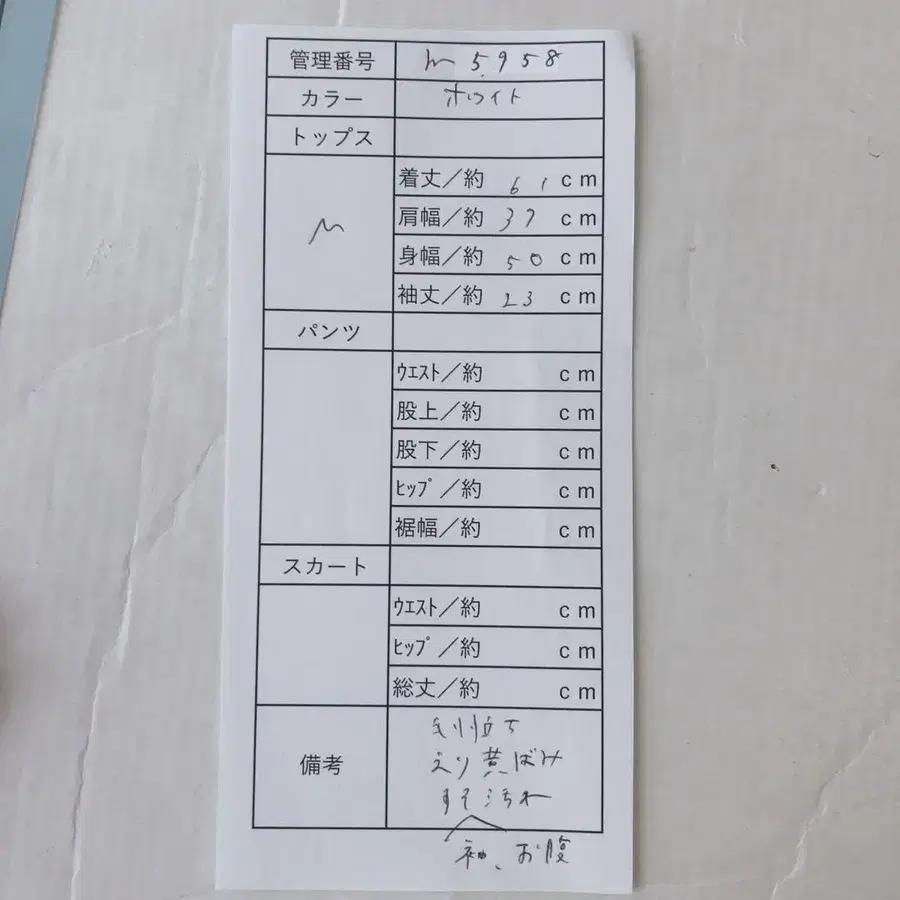 管理番号 m5958
カラー ホワイト
トップス
M
着丈／約 61 cm
肩幅／約 37 cm
身幅／約 50 cm
袖丈／約 23 cm
パンツ
ｳｴｽﾄ／約 cm
股上／約 cm
股下／約 cm
ﾋｯﾌﾟ／約 cm
裾幅／約 cm
スカート
ｳｴｽﾄ／約 cm
ﾋｯﾌﾟ／約 cm
総丈／約 cm
備考
毛羽立ち
えり黄ばみ
すそ汚れ
袖、お腹